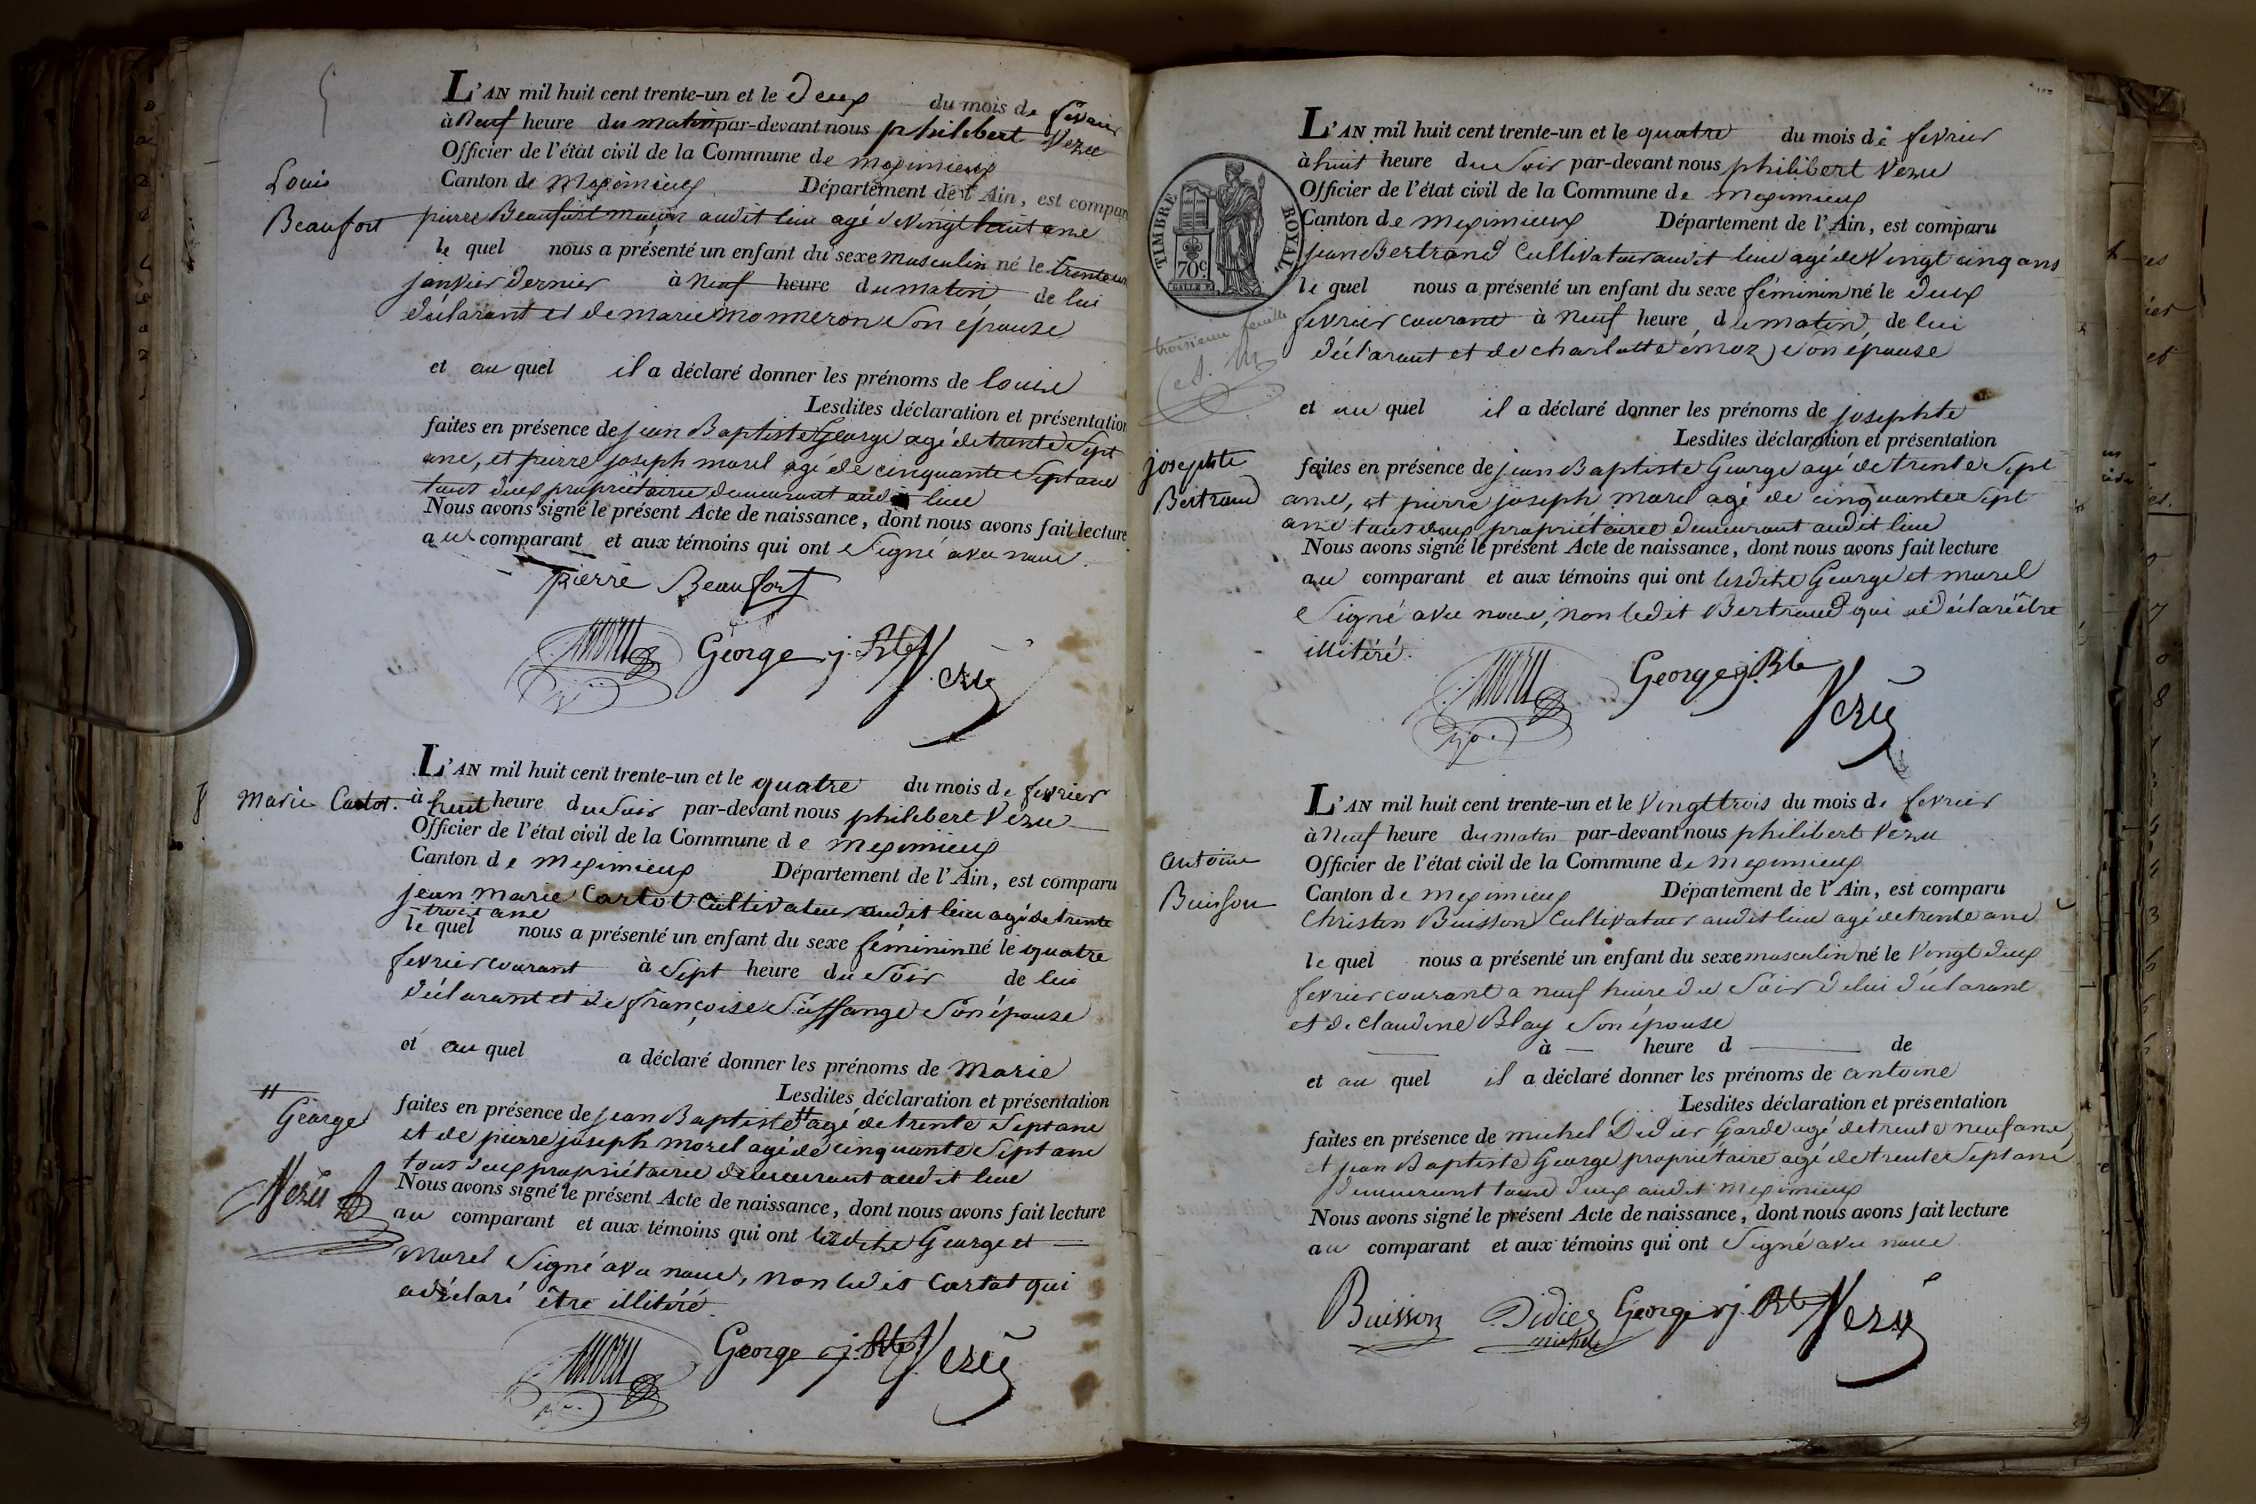 L'AN mil huit cent trente-un et le deux du mois de fevrier
à Neuf heure du matin par-devant nous philibert Vezu
Officier de l'état civil de la Commune de meximieux
Canton de Meximieux Département de l'Ain, est comparu
Louis
Beaufort
pierre Beaufort maçon audit lieu agé de vingt huit ans
le quel nous a présenté un enfant du sexe masculin né le trente un
janvier dernier à Neuf heure du matin de lui
déclarant et de marie monneron son épouse
et au quel il a déclaré donner les prénoms de louis
Lesdites déclaration et présentation
faites en présence de jean Baptiste George agé de trente Sept
ans, et pierre joseph morel agé de cinquante Sept ans
tous deux propriétaires demeurant audit lieu
Nous avons signé le présent Acte de naissance, dont nous avons fait lecture
au comparant et aux témoins qui ont Signé avec nous.
pierre Beaufort
George j. Bte Vezu
L'AN mil huit cent trente-un et le quatre du mois de fevrier
Marie Cartot.
à huit heure du Soir par-devant nous philibert Vezu
Officier de l'état civil de la Commune de meximieux
Canton de meximieux Département de l'Ain, est comparu
jean marie Cartot Cultivateur audit lieu agé de trente
trois ans
le quel nous a présenté un enfant du sexe féminin né le quatre
fevrier courant à Sept heure du Soir de lui
déclarant et de françoise son épouse
et au quel a déclaré donner les prénoms de Marie
Lesdites déclaration et présentation
George
faites en présence de jean Baptiste agé de trente Sept ans
et de pierre joseph morel agé de cinquante Sept ans
tous deux propriétaires demeurant audit lieu
Vezu
Nous avons signé le présent Acte de naissance, dont nous avons fait lecture
au comparant et aux témoins qui ont lesdits George et
Morel Signé avec nous, non ledit Cartot qui
a déclaré être illitéré
George j. Bte Vezu
L'AN mil huit cent trente-un et le quatre du mois de fevrier
à huit heure du Soir par-devant nous philibert Vezu
Officier de l'état civil de la Commune de meximieux
Canton de meximieux Département de l'Ain, est comparu
TIMBRE ROYAL
70c
jean Bertrand Cultivateur audit lieu agé de vingt cinq ans
le quel nous a présenté un enfant du sexe féminin né le deux
fevrier courant à Neuf heure du matin de lui
troisieme feuille
déclarant et de charlotte emoz son épouse
et au quel il a déclaré donner les prénoms de josephte
Lesdites déclaration et présentation
josephte
Bertrand
faites en présence de jean Baptiste George agé de trente Sept
ans, et pierre joseph morel agé de cinquante Sept
ans tous deux propriétaires demeurant audit lieu
Nous avons signé le présent Acte de naissance, dont nous avons fait lecture
au comparant et aux témoins qui ont lesdits George et morel
Signé avec nous, non ledit Bertrand qui a déclaré être
illitéré.
George j. Bte
Vezu
L'AN mil huit cent trente-un et le Vingt trois du mois de fevrier
à Neuf heure du matin par-devant nous philibert Vezu
antoine
Buisson
Officier de l'état civil de la Commune de meximieux
Canton de meximieux Département de l'Ain, est comparu
Christin Buisson Cultivateur audit lieu agé de trente ans
le quel nous a présenté un enfant du sexe masculin né le Vingt deux
fevrier courant a neuf heure du Soir de lui déclarant
et de claudine Blay Son épouse
à heure d de
et au quel il a déclaré donner les prénoms de antoine
Lesdites déclaration et présentation
faites en présence de michel Didier Garde agé de trente neuf ans,
et jean Baptiste George propriétaire agé de trente Sept ans
demeurant tous deux audit meximieux
Nous avons signé le présent Acte de naissance, dont nous avons fait lecture
au comparant et aux témoins qui ont Signé avec nous
Buisson Didier George j. Bte Vezu
michel